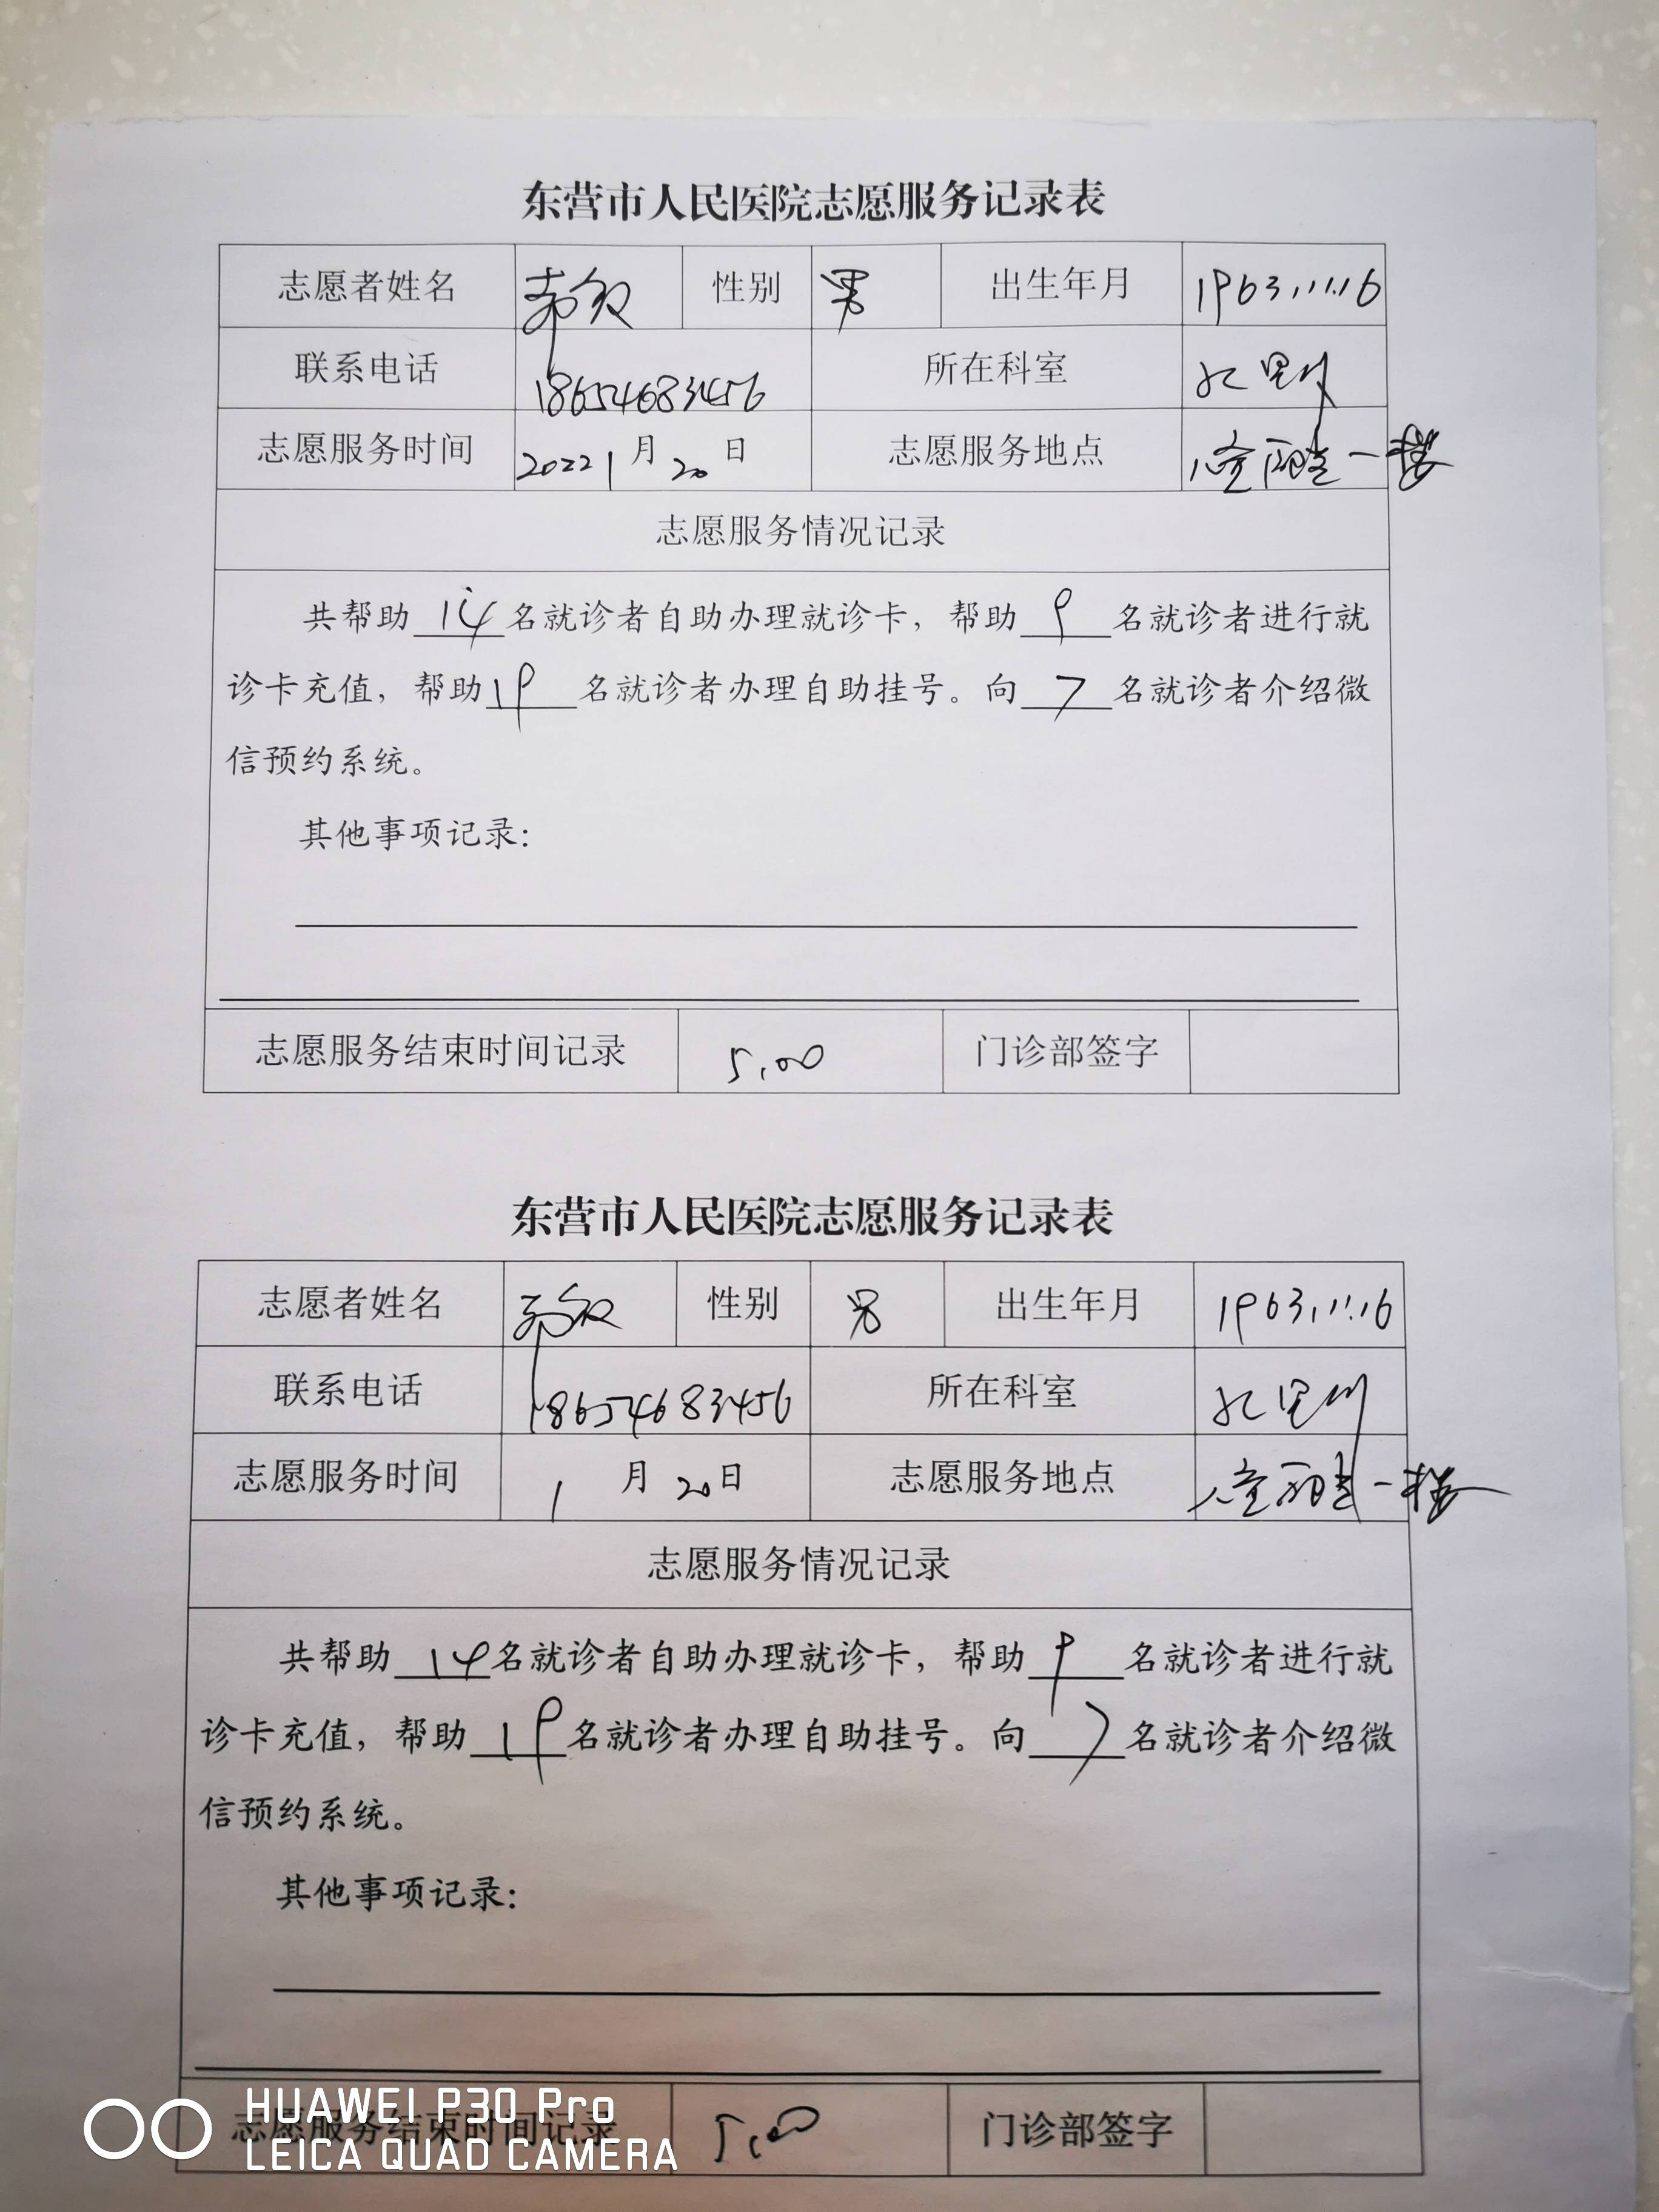 东营市人民医院志愿服务记录表
志愿者姓名 性别 男 出生年月 1963.11.16
联系电话 18654683456 所在科室
志愿服务时间 2022 1月20日 志愿服务地点 一楼
志愿服务情况记录
共帮助 14 名就诊者自助办理就诊卡，帮助 9 名就诊者进行就
诊卡充值，帮助 19 名就诊者办理自助挂号。向 7 名就诊者介绍微
信预约系统。
其他事项记录：
志愿服务结束时间记录 5:00 门诊部签字
东营市人民医院志愿服务记录表
志愿者姓名 性别 男 出生年月 1963.11.16
联系电话 18654683456 所在科室
志愿服务时间 1月20日 志愿服务地点 一楼
志愿服务情况记录
共帮助 14 名就诊者自助办理就诊卡，帮助 9 名就诊者进行就
诊卡充值，帮助 19 名就诊者办理自助挂号。向 7 名就诊者介绍微
信预约系统。
其他事项记录：
志愿服务结束时间记录 5:00 门诊部签字
HUAWEI P30 Pro
LEICA QUAD CAMERA